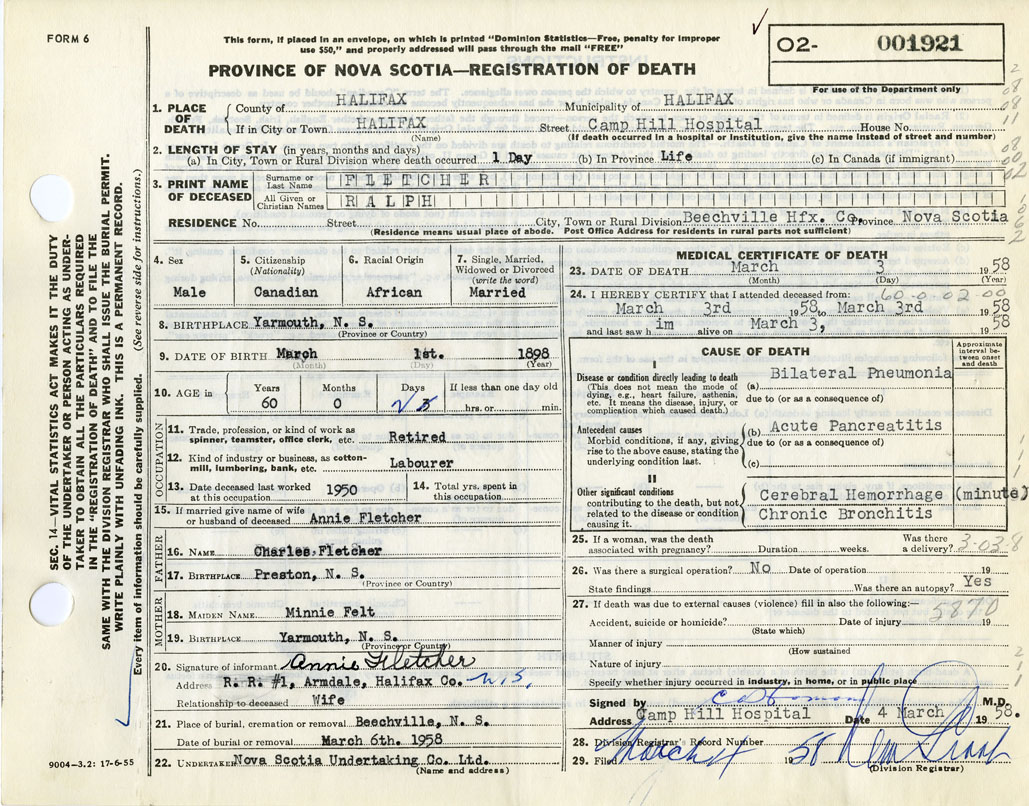 FORM 6
This form, if placed in an envelope, on which is printed "Dominion Statistics—Free, penalty for improper
use $50," and properly addressed will pass through the mail "FREE"
PROVINCE OF NOVA SCOTIA—REGISTRATION OF DEATH
02- 001921
For use of the Department only
SEC. 14—VITAL STATISTICS ACT MAKES IT THE DUTY
OF THE UNDERTAKER OR PERSON ACTING AS UNDER-
TAKER TO OBTAIN ALL THE PARTICULARS REQUIRED
IN THE "REGISTRATION OF DEATH" AND TO FILE THE
SAME WITH THE DIVISION REGISTRAR WHO SHALL ISSUE THE BURIAL PERMIT.
WRITE PLAINLY WITH UNFADING INK. THIS IS A PERMANENT RECORD.
Every item of information should be carefully supplied. (See reverse side for instructions.)
1. PLACE OF DEATH
County of HALIFAX Municipality of HALIFAX
If in City or Town HALIFAX Street Camp Hill Hospital House No.
(Name) (If death occurred in a hospital or Institution, give the name Instead of street and number)
2. LENGTH OF STAY (in years, months and days)
(a) In City, Town or Rural Division where death occurred 1 Day (b) In Province Life (c) In Canada (if immigrant)
3. PRINT NAME OF DECEASED
Surname or Last Name FLETCHER
All Given or Christian Names RALPH
RESIDENCE No. Street City, Town or Rural Division Beechville Hfx. Co. Province Nova Scotia
(Residence means usual place of abode. Post Office Address for residents in rural parts not sufficient)
4. Sex
Male
5. Citizenship
(Nationality)
Canadian
6. Racial Origin
African
7. Single, Married,
Widowed or Divorced
(write the word)
Married
8. BIRTHPLACE Yarmouth, N. S.
(Province or Country)
9. DATE OF BIRTH March 1st. 1898
(Month) (Day) (Year)
10. AGE in
Years 60
Months 0
Days 3
If less than one day old
hrs. or min.
OCCUPATION
11. Trade, profession, or kind of work as
spinner, teamster, office clerk, etc. Retired
12. Kind of industry or business, as cotton-
mill, lumbering, bank, etc. Labourer
13. Date deceased last worked
at this occupation 1950
14. Total yrs. spent in
this occupation
15. If married give name of wife
or husband of deceased Annie Fletcher
FATHER
16. NAME Charles Fletcher
17. BIRTHPLACE Preston, N. S.
(Province or Country)
MOTHER
18. MAIDEN NAME Minnie Felt
19. BIRTHPLACE Yarmouth, N. S.
(Province or Country)
20. Signature of informant Annie Fletcher
Address R. R. #1, Armdale, Halifax Co. N.S.
Relationship to deceased Wife
21. Place of burial, cremation or removal Beechville, N. S.
Date of burial or removal March 6th. 1958
22. UNDERTAKER Nova Scotia Undertaking Co. Ltd.
(Name and address)
9004—3.2: 17-6-55
MEDICAL CERTIFICATE OF DEATH
23. DATE OF DEATH March 3 1958
(Month) (Day) (Year)
24. I HEREBY CERTIFY that I attended deceased from: 60-0 02-00
March 3rd 1958 to March 3rd 1958
and last saw him alive on March 3, 1958
CAUSE OF DEATH
Approximate
interval be-
tween onset
and death
I
Disease or condition directly leading to death
(This does not mean the mode of
dying, e.g., heart failure, asthenia,
etc. It means the disease, injury, or
complication which caused death.)
(a) Bilateral Pneumonia
due to (or as a consequence of)
Antecedent causes
Morbid conditions, if any, giving
rise to the above cause, stating the
underlying condition last.
(b) Acute Pancreatitis
due to (or as a consequence of)
(c)
II
Other significant conditions
contributing to the death, but not
related to the disease or condition
causing it.
Cerebral Hemorrhage (minute)
Chronic Bronchitis
25. If a woman, was the death
associated with pregnancy? Duration weeks. Was there
a delivery? 3-038
26. Was there a surgical operation? No Date of operation 19
State findings Was there an autopsy? Yes
27. If death was due to external causes (violence) fill in also the following:— 5870
Accident, suicide or homicide? Date of injury 19
(State which)
Manner of injury
(How sustained
Nature of injury
Specify whether injury occurred in industry, in home, or in public place
Signed by M.D.
Address Camp Hill Hospital Date 4 March 1958.
28. Division Registrar's Record Number
29. Filed March 4 1958
(Division Registrar)